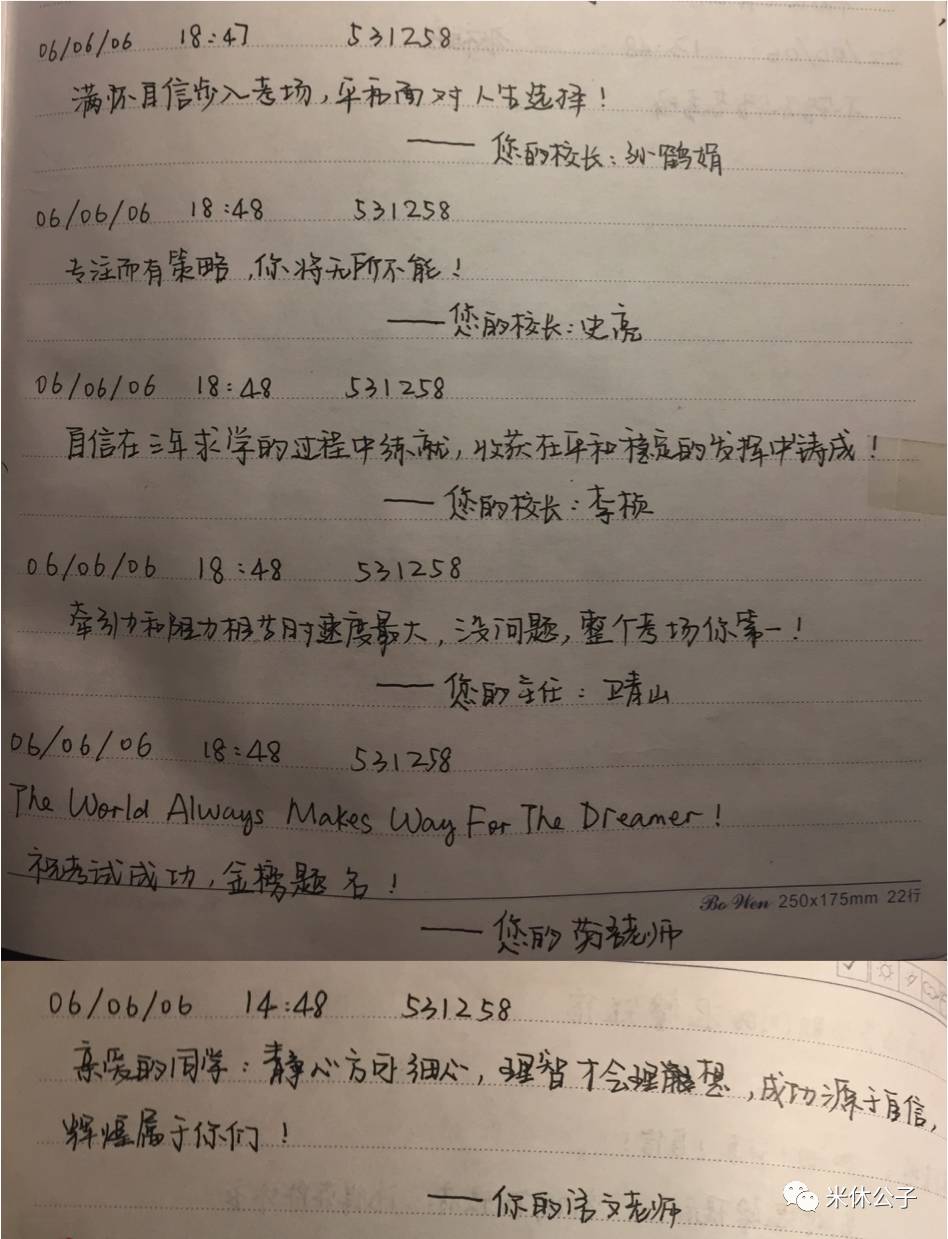 06/06/06 18:47 531258
满怀自信步入考场，平和面对人生选择！
—— 您的校长：孙鹤娟
06/06/06 18:48 531258
专注而有策略，你将无所不能！
—— 您的校长：史亮
06/06/06 18:48 531258
自信在三年求学的过程中练就，收获在平和稳定的发挥中铸成！
—— 您的校长：李桢
06/06/06 18:48 531258
牵引力和阻力相等时速度最大，没问题，整个考场你第一！
—— 您的主任：卫青山
06/06/06 18:48 531258
The World Always Makes Way For The Dreamer！
祝考试成功，金榜题名！
Bo Wen 250x175mm 22行
—— 您的英语老师
06/06/06 14:48 531258
亲爱的同学：静心方可细心，理智才会理解想，成功源于自信，
辉煌属于你们！
—— 你的语文老师
米休公子